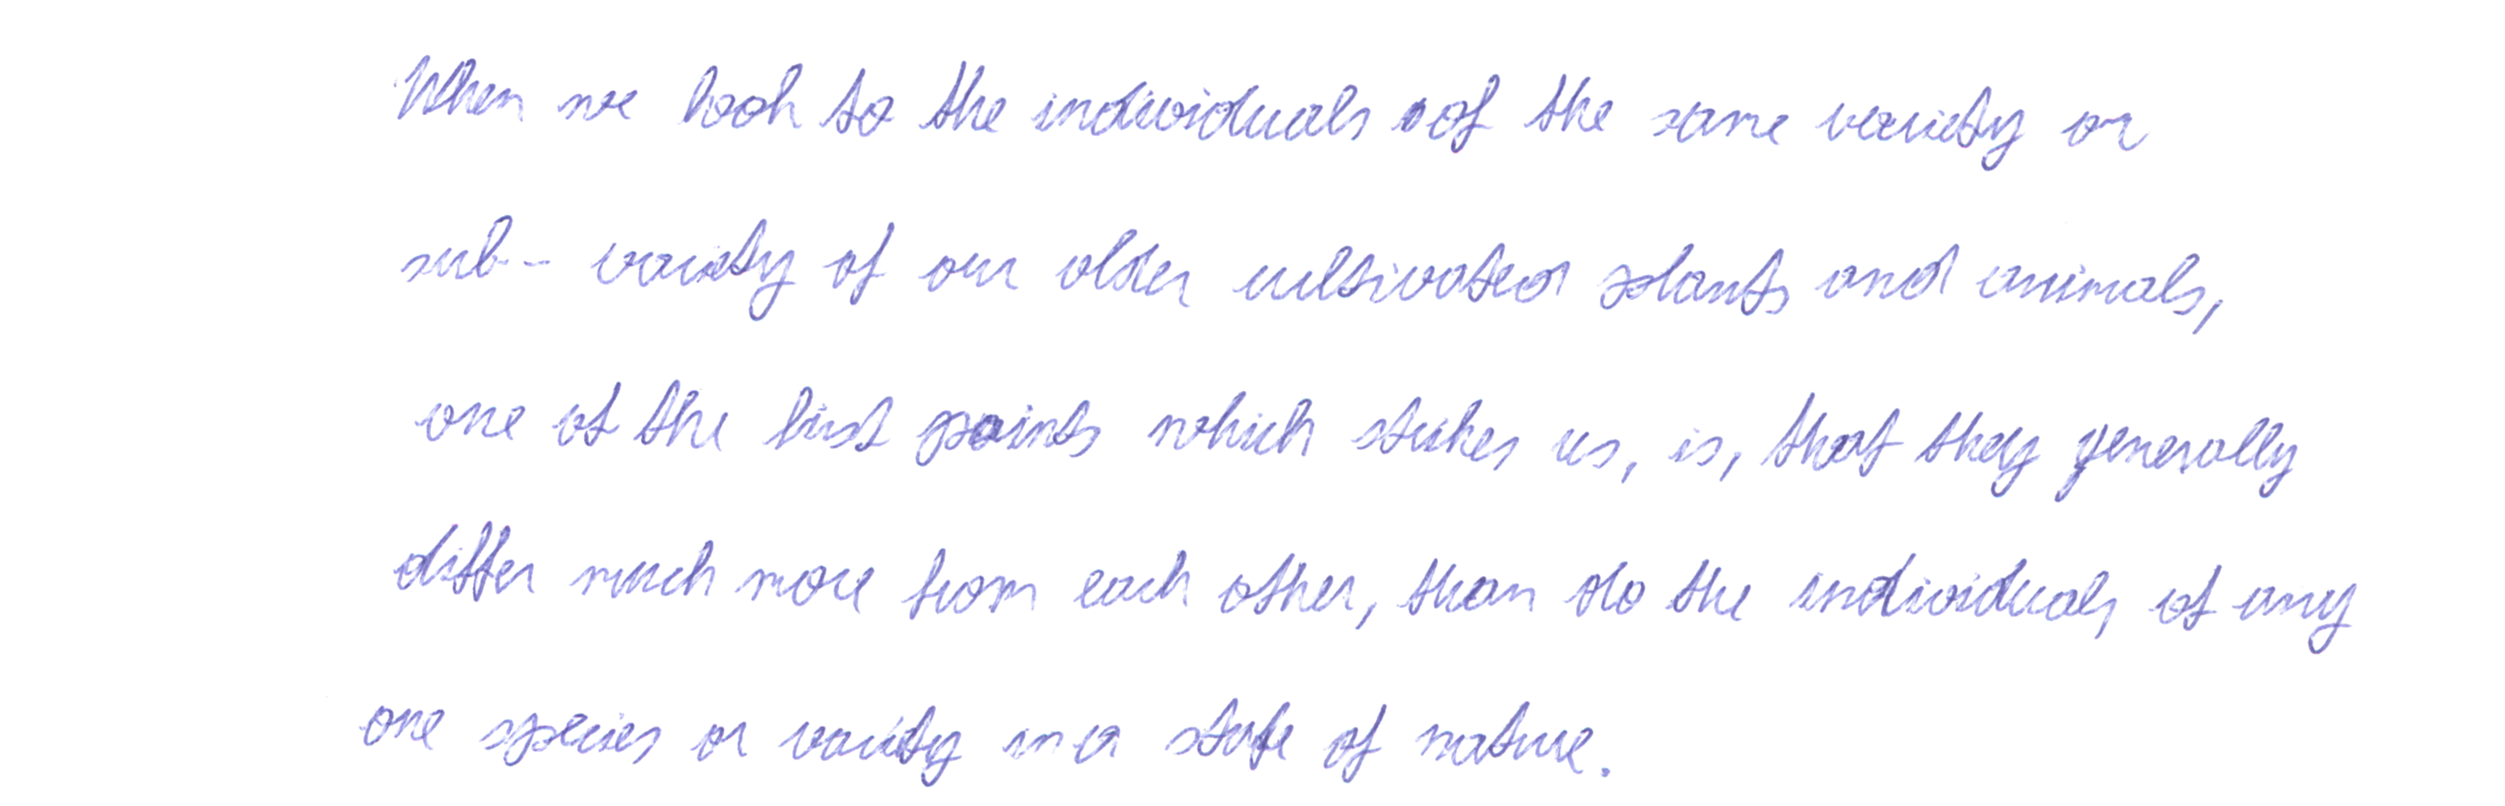 When we look to the individuals of the same variety or
sub-variety of our older cultivated plants and animals,
one of the first points which strikes us, is, that they generally
differ much more from each other, than do the individuals of any
one species or variety in a state of nature.